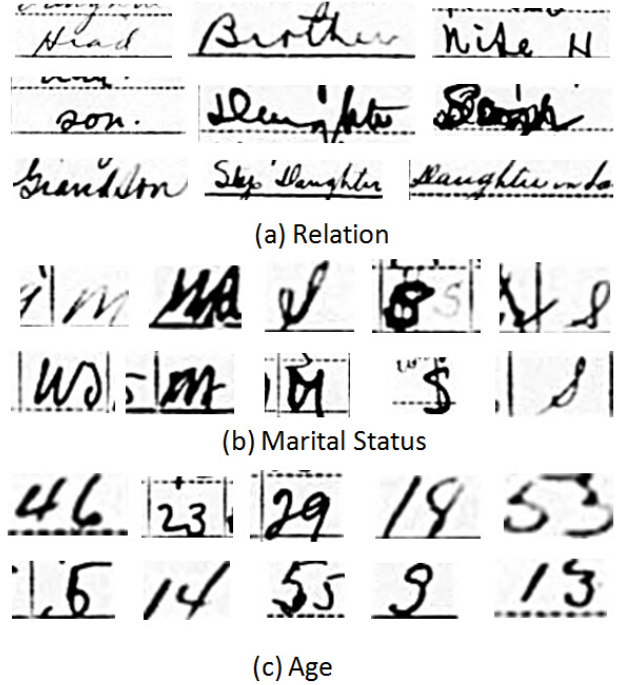 Head Brother Wife H
son. Daughter
Grandson Step Daughter Daughter in La
(a) Relation
M S S S
Wd M M S S
(b) Marital Status
46 23 29 18 53
5 14 55 9 13
(c) Age